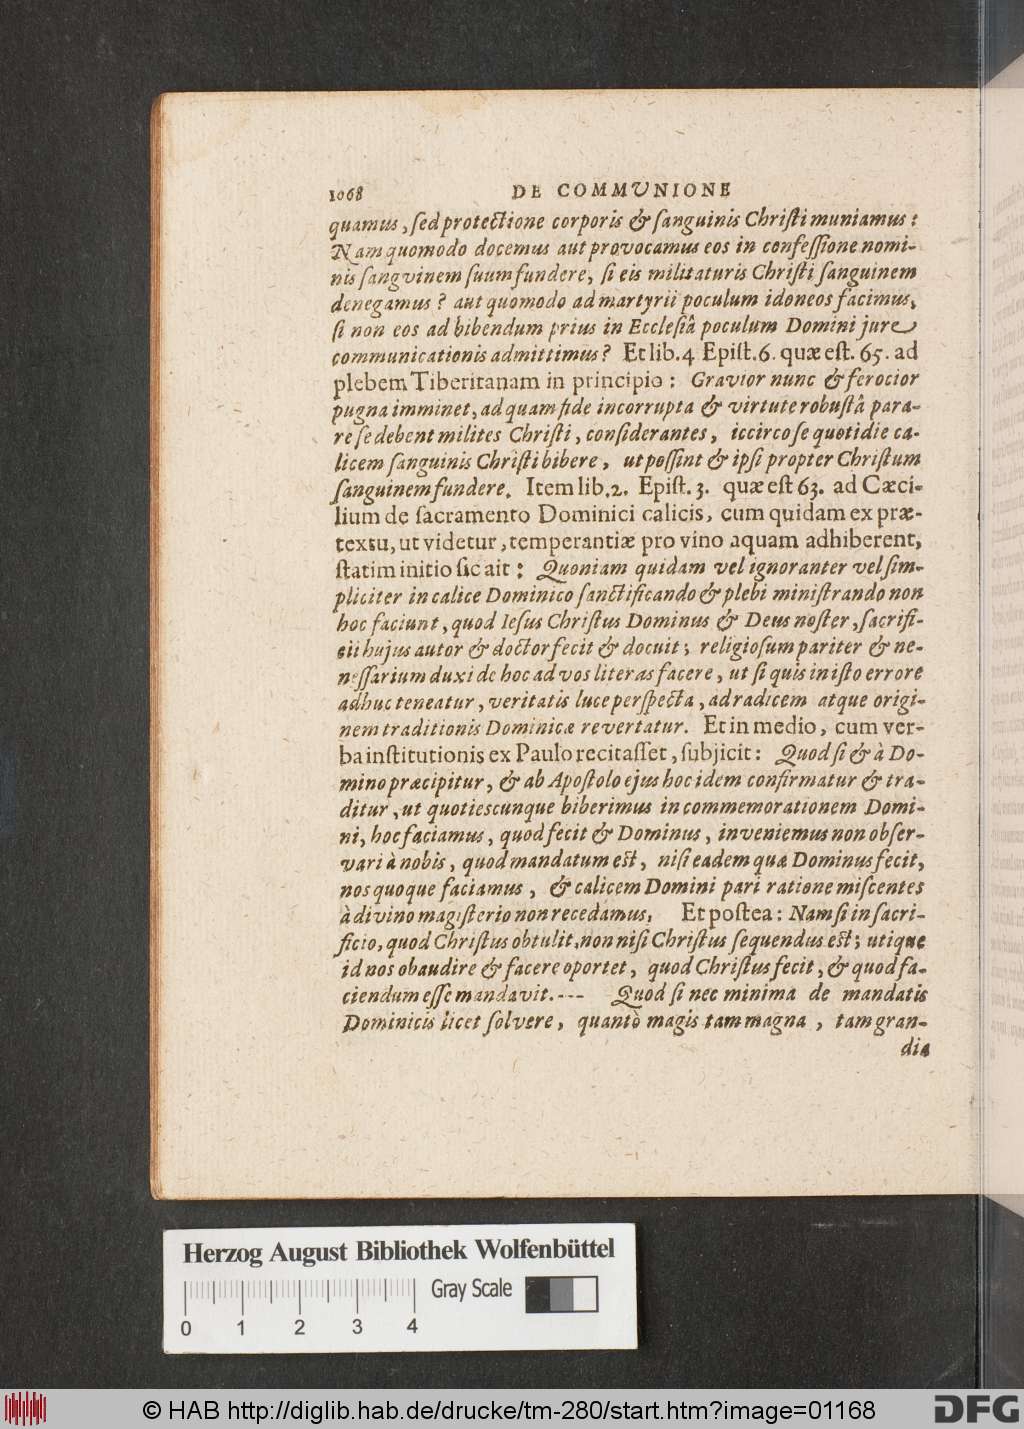 1068 DE COMMVNIONE
quamus, sed protectione corporis & sanguinis Christi muniamus:
Nam quomodo docemus aut provocamus eos in confessione nomi-
nis sangvinem suum fundere, si eis militaturis Christi sanguinem
denegamus? aut quomodo ad martyrii poculum idoneos facimus,
si non eos ad bibendum prius in Ecclesiâ poculum Domini jure
communicationis admittimus? Et lib. 4 Epist. 6. quæ est. 65. ad
plebem Tiberitanam in principio: Gravior nunc & ferocior
pugna imminet, ad quam fide incorrupta & virtute robustâ para-
re se debent milites Christi, considerantes, iccirco se quotidie ca-
licem sanguinis Christi bibere, ut possint & ipsi propter Christum
sanguinem fundere. Item lib. 2. Epist. 3. quæ est 63. ad Cæci-
lium de sacramento Dominici calicis, cum quidam ex præ-
textu, ut videtur, temperantiæ pro vino aquam adhiberent,
statim initio sic ait: Quoniam quidam vel ignoranter vel sim-
pliciter in calice Dominico sanctificando & plebi ministrando non
hoc faciunt, quod Iesus Christus Dominus & Deus noster, sacrifi-
cii hujus autor & doctor fecit & docuit; religiosum pariter & ne-
nessarium duxi de hoc ad vos literas facere, ut si quis in isto errore
adhuc teneatur, veritatis luce perspecta, ad radicem atque origi-
nem traditionis Dominicæ revertatur. Et in medio, cum ver-
ba institutionis ex Paulo recitasset, subjicit: Quod si & à Do-
mino præcipitur, & ab Apostolo ejus hoc idem confirmatur & tra-
ditur, ut quotiescunque biberimus in commemorationem Domi-
ni, hoc faciamus, quod fecit & Dominus, inveniemus non obser-
vari à nobis, quod mandatum est, nisi eadem quæ Dominus fecit,
nos quoque faciamus, & calicem Domini pari ratione miscentes
à divino magisterio non recedamus. Et postea: Nam si in sacri-
ficio, quod Christus obtulit, non nisi Christus sequendus est; utique
id nos obaudire & facere oportet, quod Christus fecit, & quod fa-
ciendum esse mandavit. --- Quod si nec minima de mandatis
Dominicis licet solvere, quantò magis tam magna, tam gran-
dia
Herzog August Bibliothek Wolfenbüttel
Gray Scale
0 1 2 3 4
© HAB http://diglib.hab.de/drucke/tm-280/start.htm?image=01168
DFG